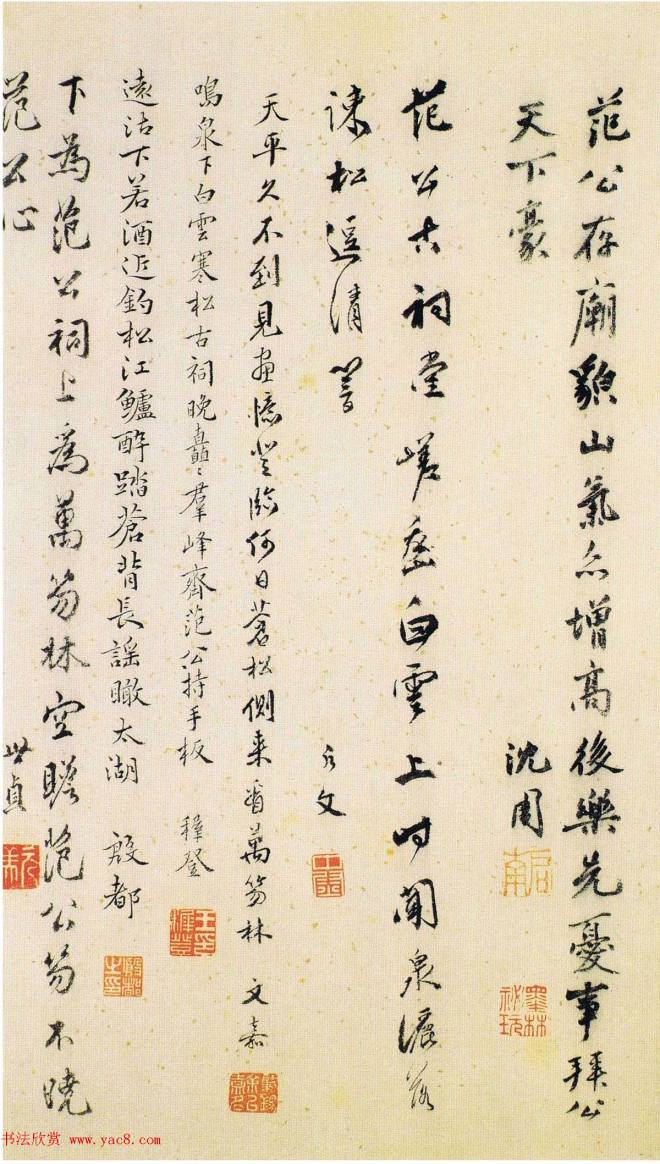 范公存廟貌山氣亦增高後樂先憂事拜公
天下豪
沈周
范公古祠堂嵯峨白雲上時聞泉灑落
謖松逗清響
允文
天平久不到見畫憶登臨何日蒼松側来看萬笏林 文嘉
鳴泉下白雲寒松古祠晚矗矗羣峰齊范公持手板 穉登
遠沽下若酒近釣松江鱸醉踏蒼背長謡瞰太湖 殷都
下為范公祠上為萬笏林空瞻范公笏不曉
范公心
世貞
啟南
墨林祕玩
王穉登
殷都之印
书法欣赏 www.yac8.com